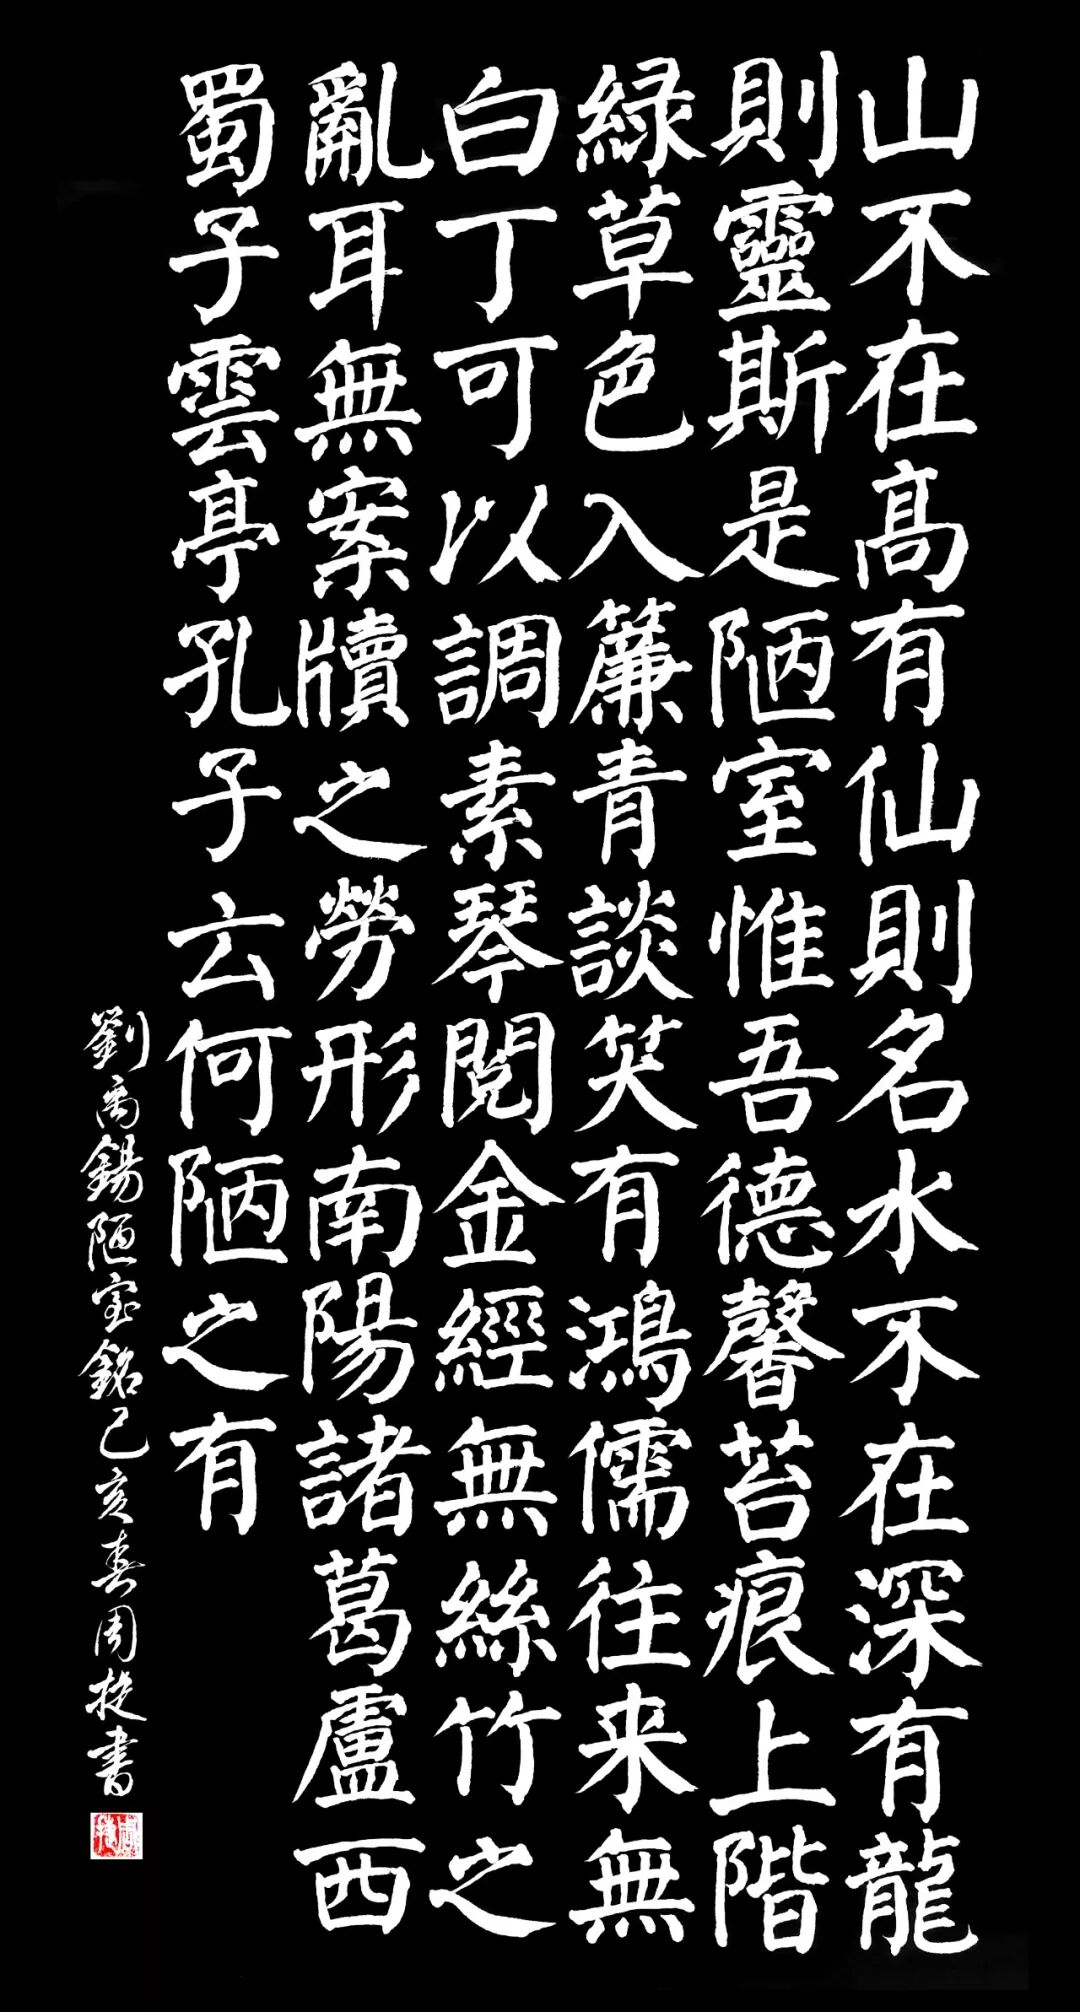 山不在高有仙則名水不在深有龍
則靈斯是陋室惟吾德馨苔痕上階
緑草色入簾青談笑有鴻儒往来無
白丁可以調素琴閱金經無絲竹之
亂耳無案牘之勞形南陽諸葛盧西
蜀子雲亭孔子云何陋之有
劉禹錫陋室銘己亥春周捷書